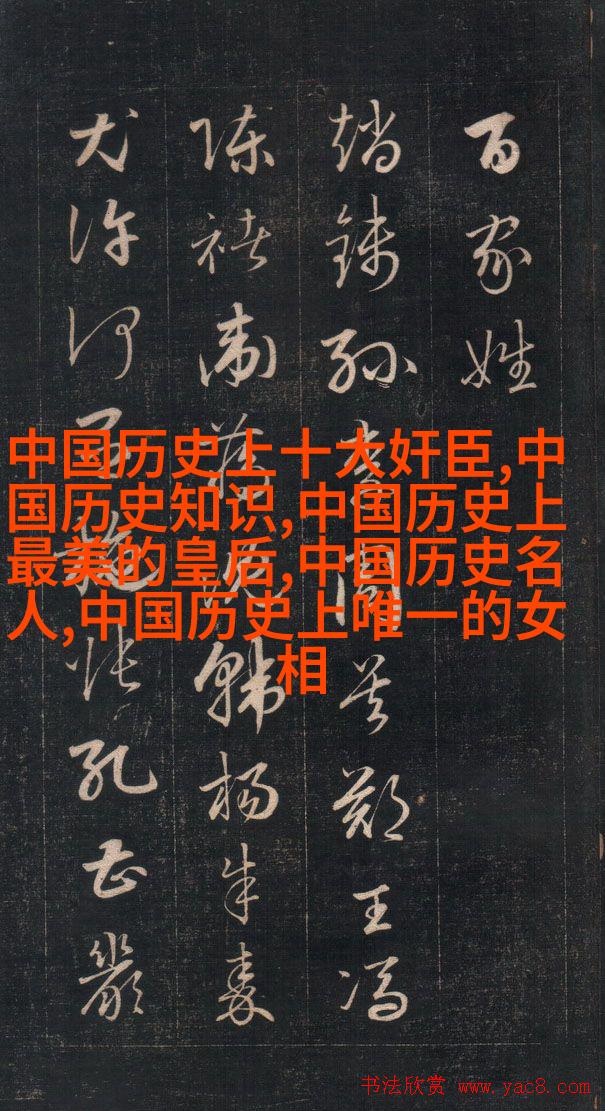 百家姓
趙錢孫李周吳鄭王馮
陳褚衛蔣沈韓楊朱秦
尤許何呂施張孔曹嚴
中国历史上十大奸臣,中
国历史知识,中国历史上
最美的皇后,中国历史名
人,中国历史上唯一的女
相
书法欣赏 www.yac8.com